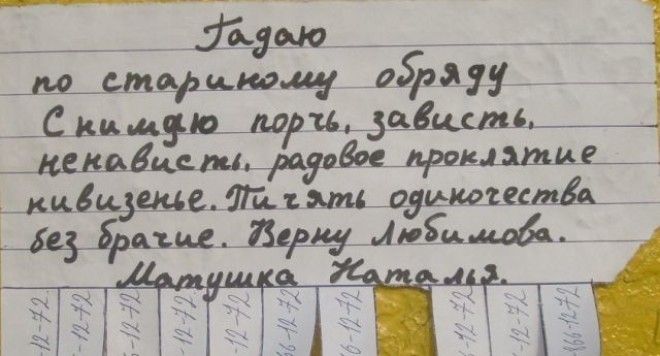 Гадаю
по стариному обряду
Снимаю порчь, зависть,
ненависть, радовое проклятие
нивизенье. Пичять одиночества
без брачие. Верну Любимова.
Матушка Наталья.
-12-72
-12-72
-12-72
-12-72
-12-72
66-12-72
6-12-72
-12-72
-12-72
866-12-72